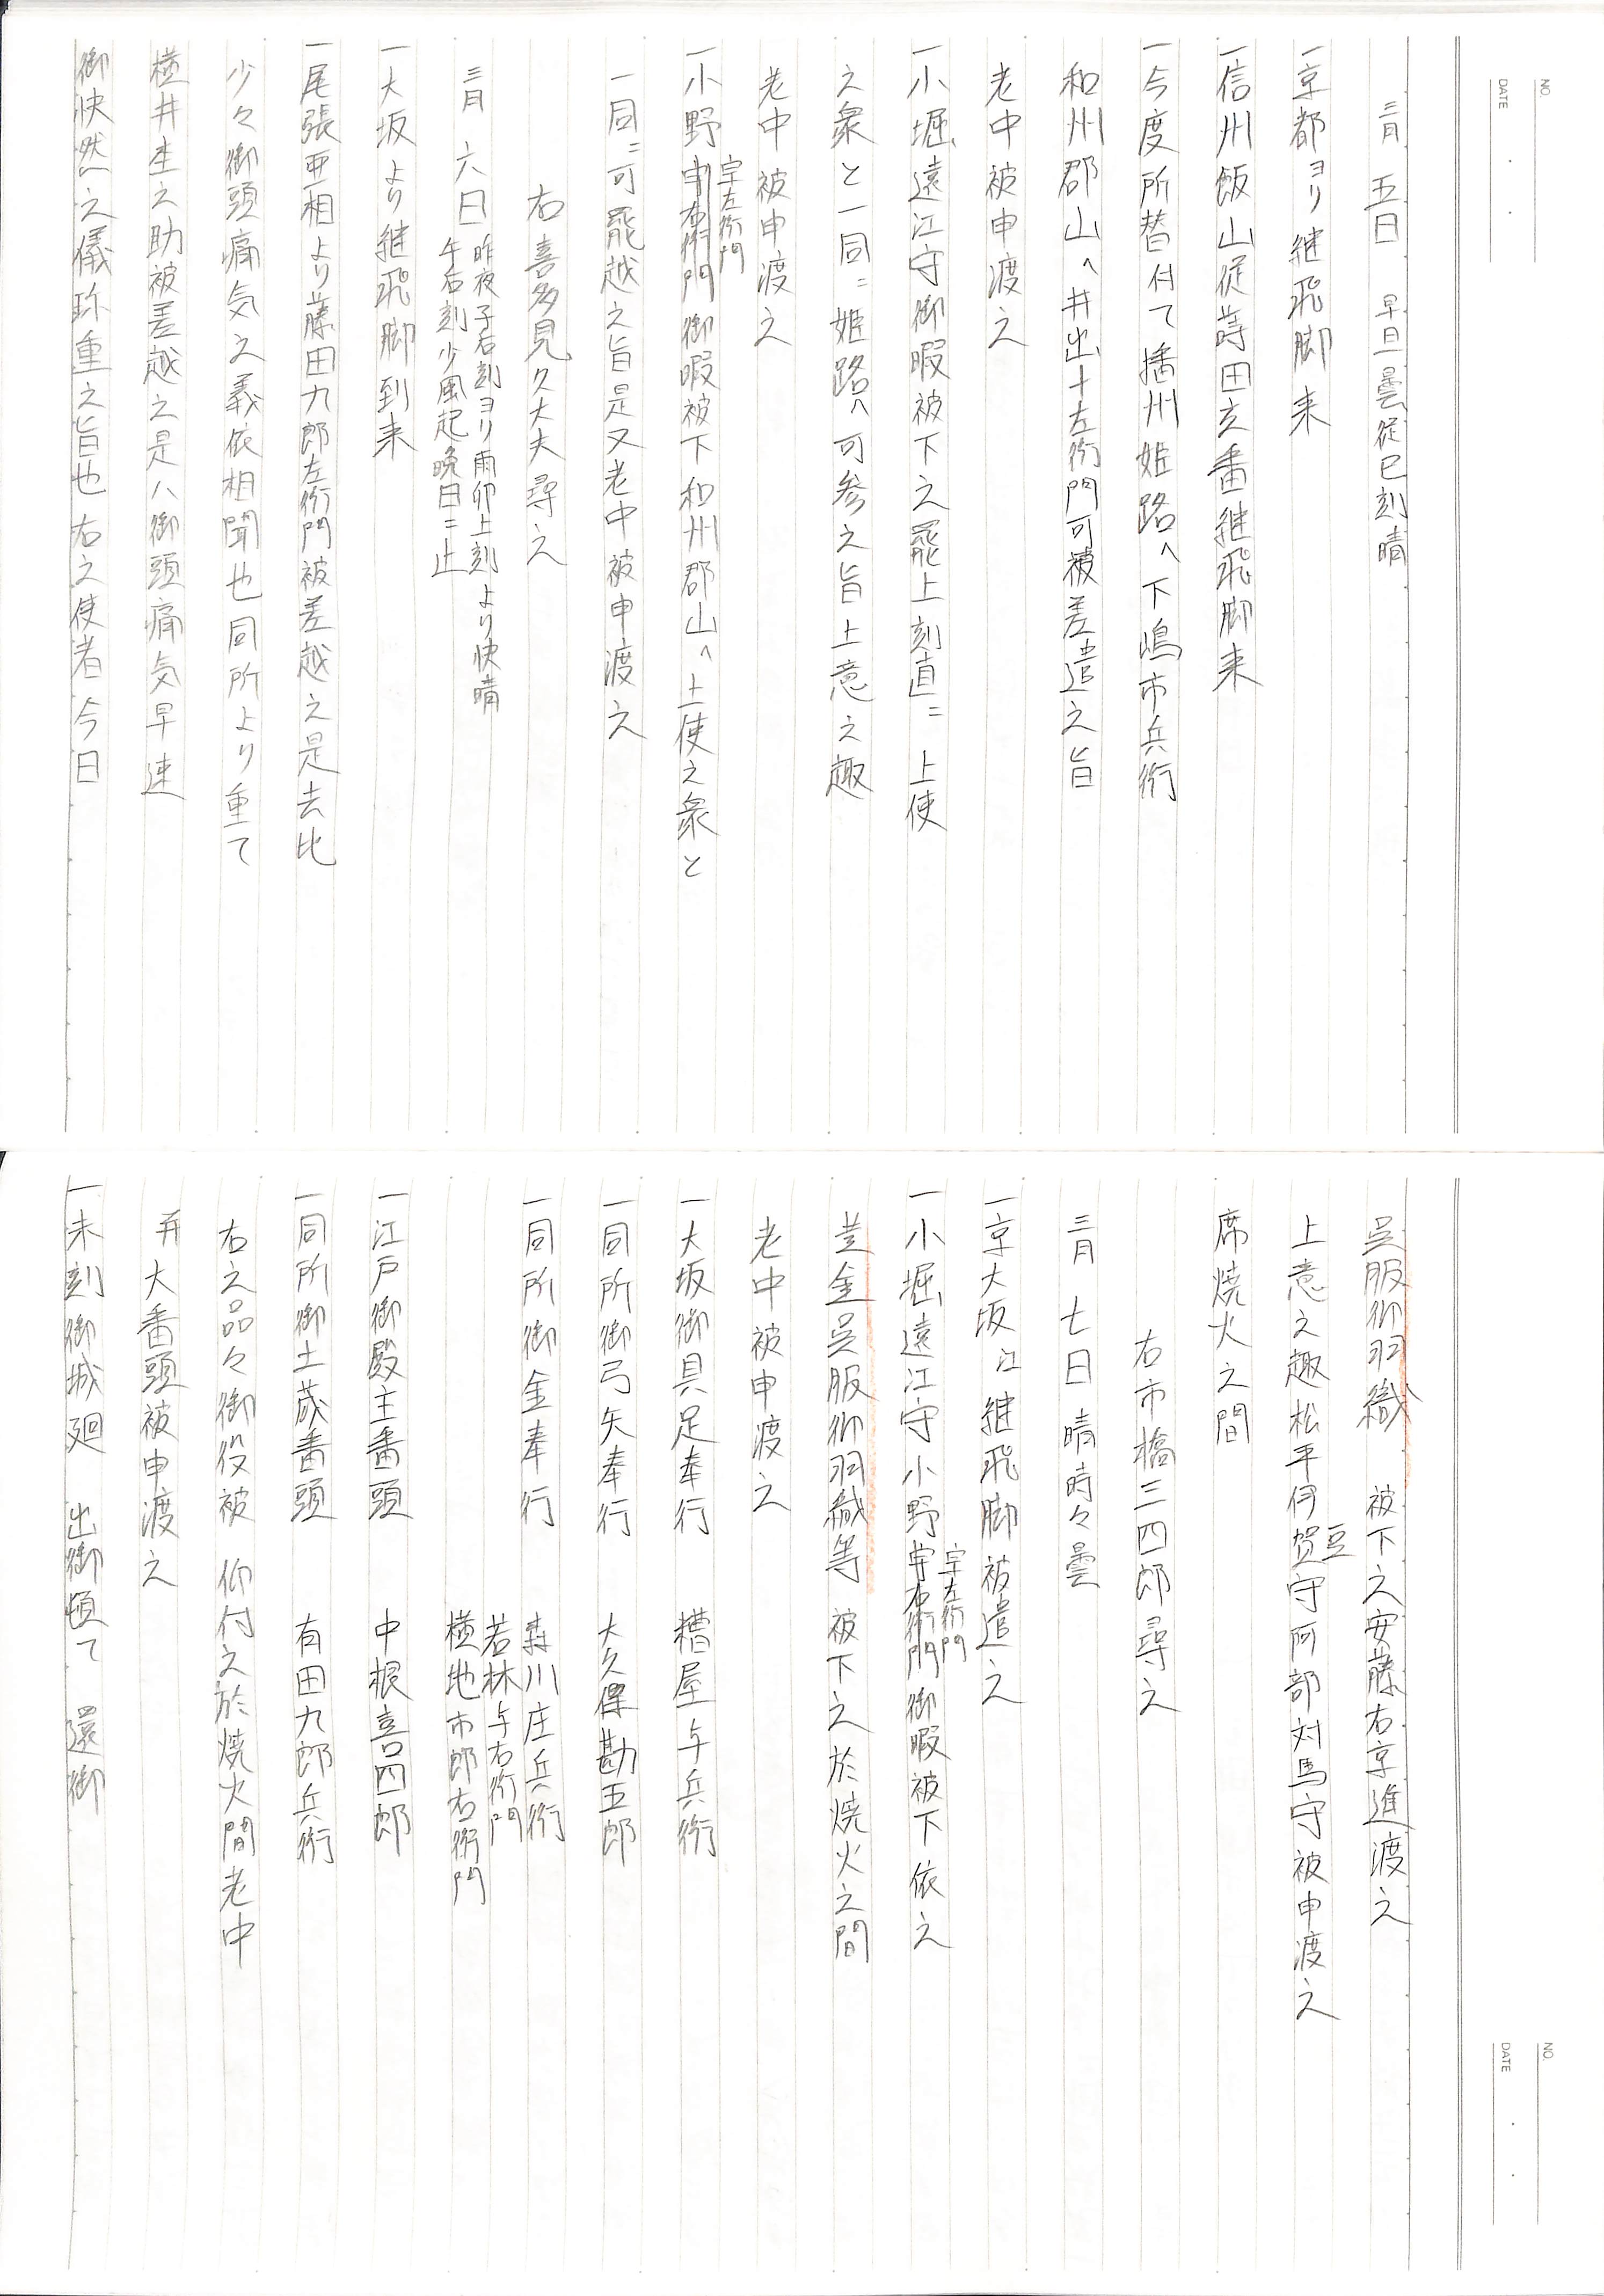 NO.
DATE
三月　五日　早旦曇従巳刻晴
一京都ヨリ継飛脚来
一信州飯山従蒔田玄番継飛脚来
一今度所替付て播州姫路へ下嶋市兵衛
和州郡山へ井出十左衛門可被差遣之旨
老中被申渡之
一小堀遠江守御暇被下之罷上刻直ニ　上使
之衆と一同ニ姫路へ可参之旨上意之趣
老中被申渡之
宇左衛門
一小野宇右衛門御暇被下和州郡山へ上使之衆と
一同ニ可罷越之旨是又老中被申渡之
右喜多見久大夫尋之
三月　六日　昨夜子右刻ヨリ雨卯上刻より快晴
午右刻少風起晩日ニ止
一大坂より継飛脚到来
一尾張亜相より藤田九郎左衛門被差越之是去比
少々御頭痛気之義依相聞也同所より重て
横井杢之助被差越之是ハ御頭痛気早速
御快然之儀珎重之旨也右之使者今日
NO.
DATE
呉服御羽織　被下之安藤右京進渡之
上意之趣松平伊賀守阿部対馬守被申渡之
豆
席焼火之間
右市橋三四郎尋之
三月　七日　晴時々曇
一京大坂江継飛脚被遣之
宇左衛門
一小堀遠江守小野宇右衛門御暇被下依之
黄金呉服御羽織等　被下之於焼火之間
老中被申渡之
一大坂御具足奉行　糟屋与兵衛
一同所御弓矢奉行　大久保勘五郎
一同所御金奉行　森川庄兵衛
若林与右衛門
横地市郎右衛門
一江戸御殿主番頭　中根喜四郎
一同所御土蔵番頭　有田九郎兵衛
右之品々御役被　仰付之於焼火間老中
并大番頭被申渡之
一未刻御城廻　出御頓て　還御